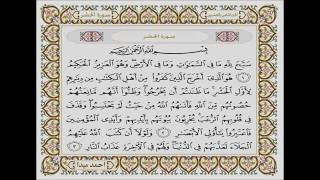 سورة الحشر
سورة الحشر
بسم الله الرحمن الرحيم
سَبَّحَ لِلَّهِ مَا فِي السَّمَٰوَٰتِ وَمَا فِي الْأَرْضِ وَهُوَ الْعَزِيزُ الْحَكِيمُ
١ هُوَ الَّذِي أَخْرَجَ الَّذِينَ كَفَرُوا مِنْ أَهْلِ الْكِتَٰبِ مِن دِيَٰرِهِمْ
لِأَوَّلِ الْحَشْرِ مَا ظَنَنتُمْ أَن يَخْرُجُوا وَظَنُّوا أَنَّهُم مَّانِعَتُهُمْ
حُصُونُهُم مِّنَ اللَّهِ فَأَتَىٰهُمُ اللَّهُ مِنْ حَيْثُ لَمْ يَحْتَسِبُوا وَقَذَفَ
فِي قُلُوبِهِمُ الرُّعْبَ يُخْرِبُونَ بُيُوتَهُم بِأَيْدِيهِمْ وَأَيْدِي الْمُؤْمِنِينَ
فَاعْتَبِرُوا يَٰأُولِي الْأَبْصَٰرِ ٢ وَلَوْلَا أَن كَتَبَ اللَّهُ عَلَيْهِمُ
الْجَلَاءَ لَعَذَّبَهُمْ فِي الدُّنْيَا وَلَهُمْ فِي الْآخِرَةِ عَذَابُ النَّارِ ٣